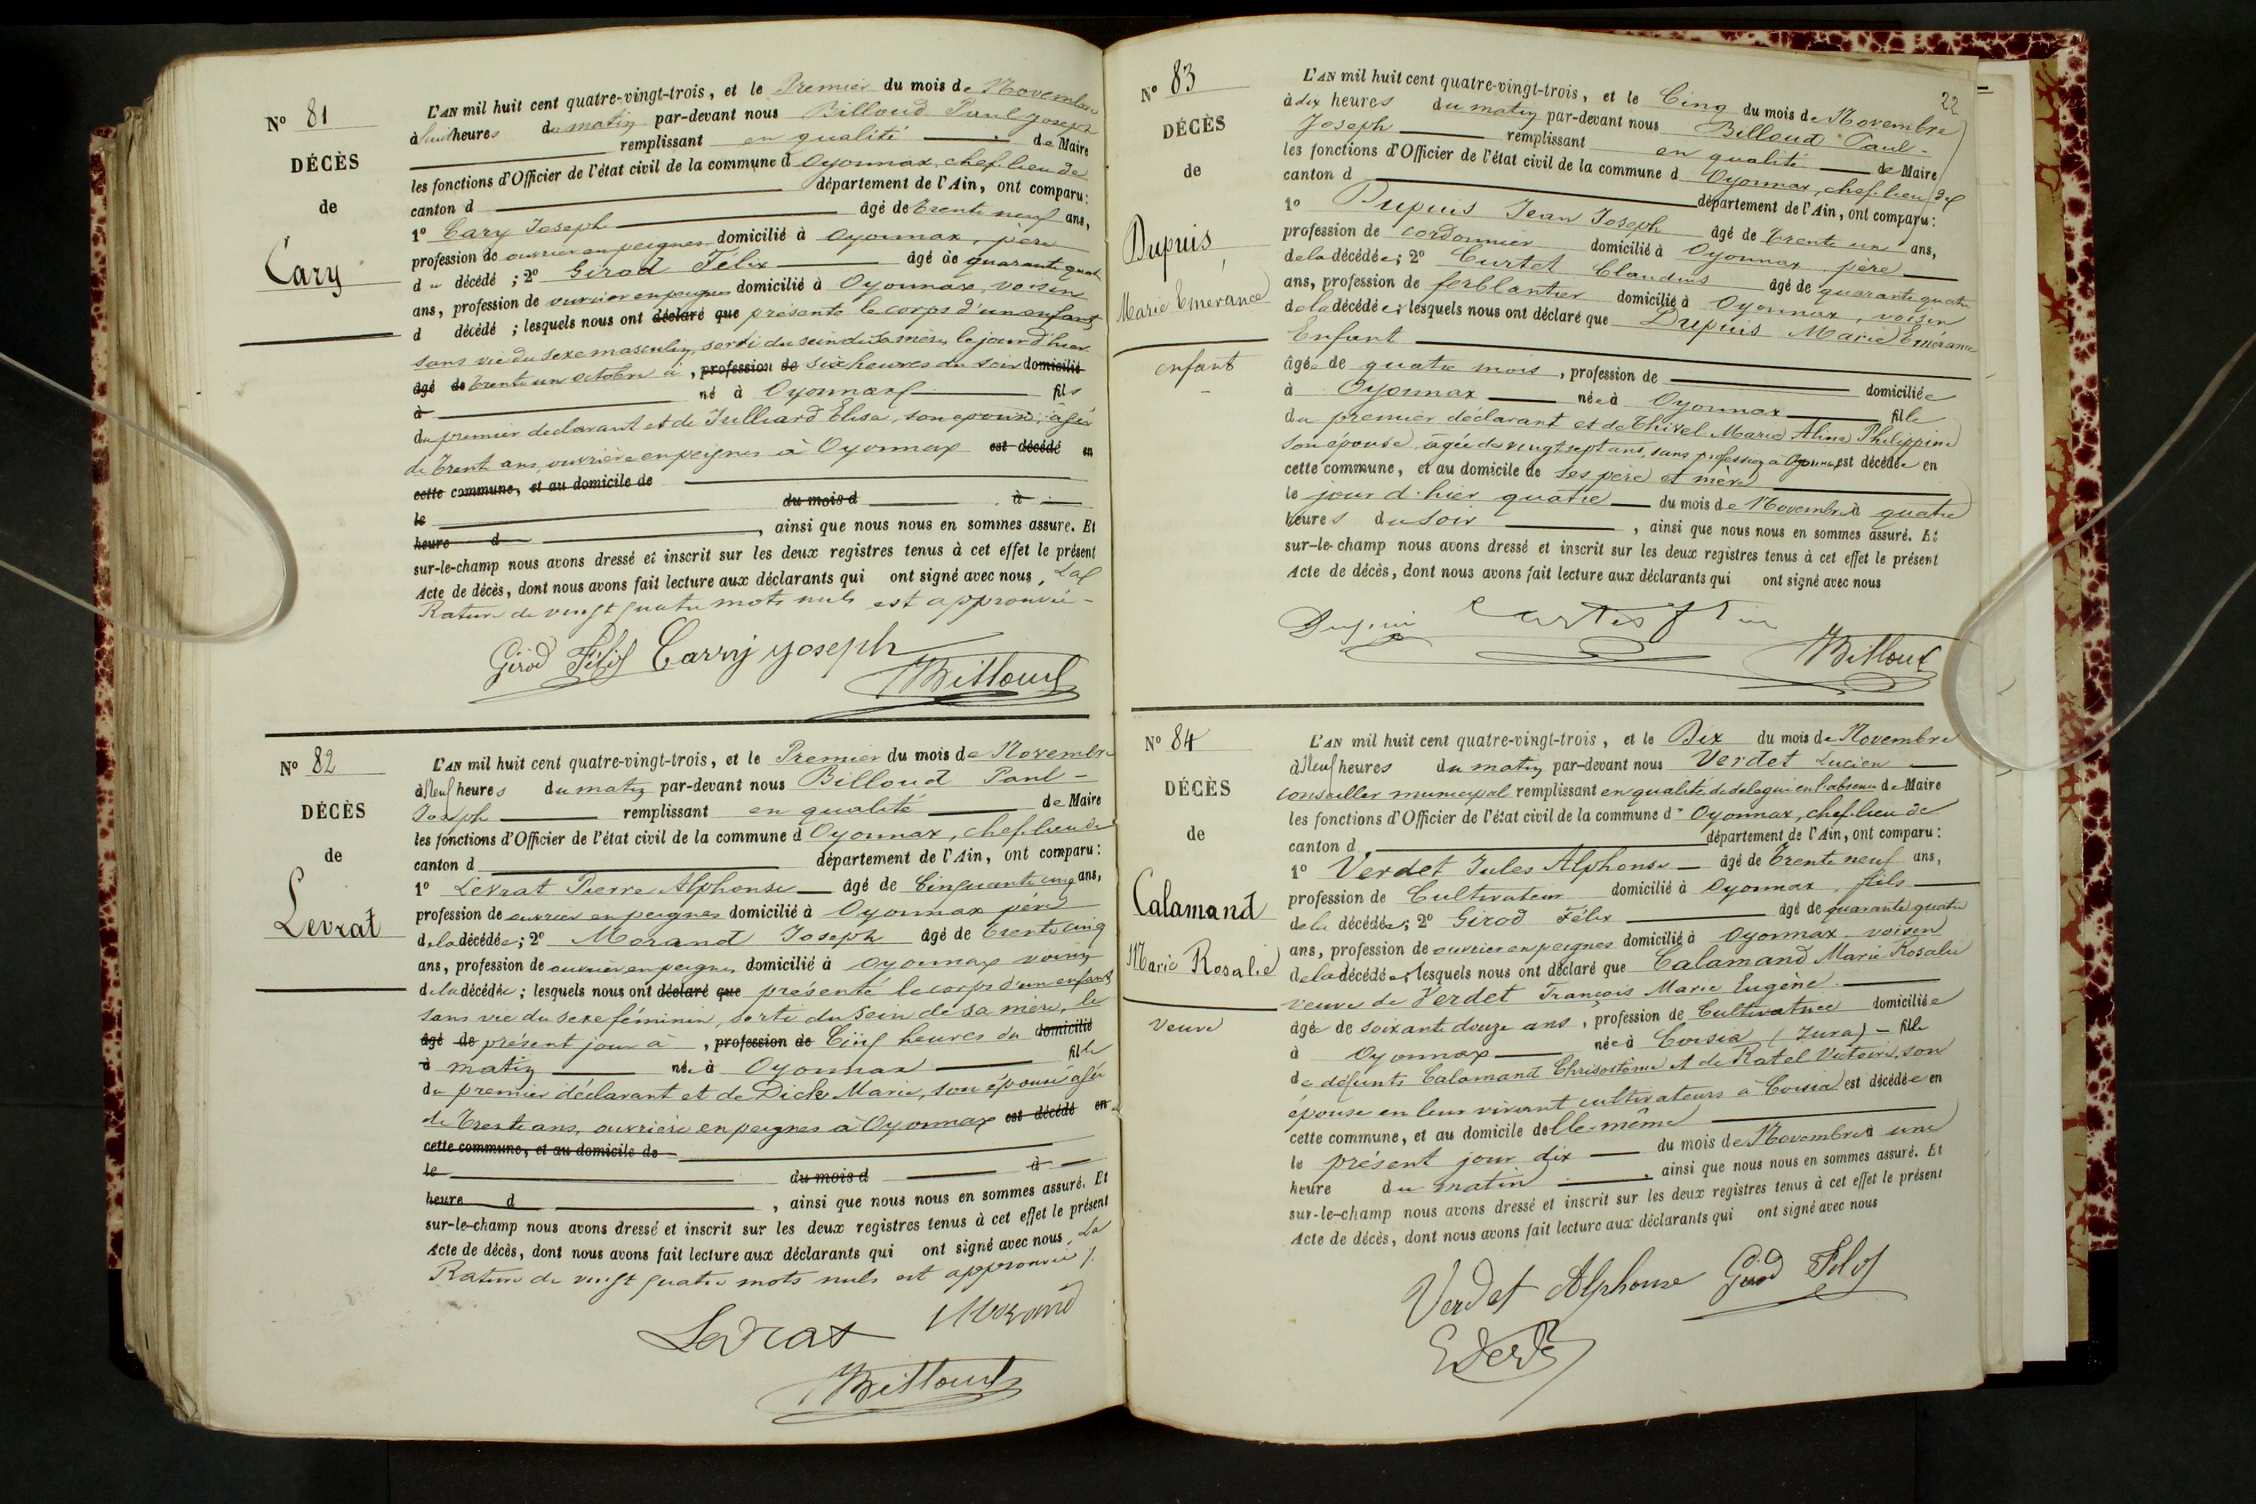 N° 81
DÉCÈS
de
Cary
L'AN mil huit cent quatre-vingt-trois, et le Premier du mois de Novembre
à huit heures du matin par-devant nous Billoud Paul Joseph
remplissant en qualité de Maire
les fonctions d'Officier de l'état civil de la commune d Oyonnax, chef-lieu de
canton d département de l'Ain, ont comparu:
1° Cary Joseph âgé de trente neuf ans,
profession de ouvrier en peignes domicilié à Oyonnax, père
du décédé ; 2° Girod Félix âgé de quarante quatre
ans, profession de ouvrier en peignes domicilié à Oyonnax, voisin
d décédé ; lesquels nous ont déclaré que présenté le corps d'un enfant
sans vie du sexe masculin, sorti du sein de sa mère, le jour d'hier
âgé de trente un octobre à , profession de six heures du soir domicilié
à né à Oyonnax fils
du premier déclarant et de Julliard Elisa, son épouse, âgée
de trente ans, ouvrière en peignes à Oyonnax est décédé en
cette commune, et au domicile de
le du mois d à
heure d , ainsi que nous nous en sommes assuré. Et
sur-le-champ nous avons dressé et inscrit sur les deux registres tenus à cet effet le présent
Acte de décès, dont nous avons fait lecture aux déclarants qui ont signé avec nous, La
Rature de vingt quatre mots nuls est approuvée -
Girod Félix Carry Joseph
Billoud
N° 82
DÉCÈS
de
Levrat
L'AN mil huit cent quatre-vingt-trois, et le Premier du mois de Novembre
à Neuf heures du matin par-devant nous Billoud Paul -
Joseph remplissant en qualité de Maire
les fonctions d'Officier de l'état civil de la commune d Oyonnax, chef-lieu de
canton d département de l'Ain, ont comparu:
1° Levrat Pierre Alphonse âgé de Cinquante cinq ans,
profession de ouvrier en peignes domicilié à Oyonnax père
de la décédée ; 2° Morand Joseph âgé de trente cinq
ans, profession de ouvrier en peignes domicilié à Oyonnax voisin
de la décédée ; lesquels nous ont déclaré que présenté le corps d'un enfant
sans vie du sexe féminin, sorti du sein de sa mère, le
âgé de présent jour à , profession de Cinq heures du domicilié
à matin née à Oyonnax fille
du premier déclarant et de Dick Marie, son épouse âgée
de trente ans, ouvrière en peignes à Oyonnax est décédé en
cette commune, et au domicile de
le du mois d à
heure d , ainsi que nous nous en sommes assuré. Et
sur-le-champ nous avons dressé et inscrit sur les deux registres tenus à cet effet le présent
Acte de décès, dont nous avons fait lecture aux déclarants qui ont signé avec nous, La
Rature de vingt quatre mots nuls est approuvée /.
Levrat Morand
Billoud
22
N° 83
DÉCÈS
de
Dupuis
Marie Emérance
enfant
L'AN mil huit cent quatre-vingt-trois, et le Cinq du mois de Novembre
à dix heures du matin par-devant nous Billoud Paul -
Joseph remplissant en qualité de Maire
les fonctions d'Officier de l'état civil de la commune d Oyonnax, chef-lieu de
canton d département de l'Ain, ont comparu:
1° Dupuis Jean Joseph âgé de trente un ans,
profession de cordonnier domicilié à Oyonnax, père
de la décédée; 2° Curtet Claudius âgé de quarante quatre
ans, profession de ferblantier domicilié à Oyonnax, voisin
de la décédée; lesquels nous ont déclaré que Dupuis Marie Emérance
Enfant
âgée de quatre mois, profession de domiciliée
à Oyonnax née à Oyonnax fille
du premier déclarant et de Thivel Marie Aline Philippine
son épouse, âgée de vingt sept ans, sans profession à Oyonnax est décédée en
cette commune, et au domicile de ses père et mère
le jour d'hier quatre du mois de Novembre à quatre
heures du soir , ainsi que nous nous en sommes assuré. Et
sur-le-champ nous avons dressé et inscrit sur les deux registres tenus à cet effet le présent
Acte de décès, dont nous avons fait lecture aux déclarants qui ont signé avec nous
Dupuis
Billoud
N° 84
DÉCÈS
de
Calamand
Marie Rosalie
veuve
L'AN mil huit cent quatre-vingt-trois, et le Dix du mois de Novembre
à Neuf heures du matin par-devant nous Verdet Lucien
conseiller municipal remplissant en qualité de délégué en l'absence de Maire
les fonctions d'Officier de l'état civil de la commune d'Oyonnax, chef-lieu de
canton d département de l'Ain, ont comparu:
1° Verdet Jules Alphonse âgé de trente neuf ans,
profession de Cultivateur domicilié à Oyonnax, fils
de la décédée; 2° Girod Félix âgé de quarante quatre
ans, profession de ouvrier en peignes domicilié à Oyonnax voisin
de la décédée; lesquels nous ont déclaré que Calamand Marie Rosalie
veuve de Verdet François Marie Eugène
âgée de soixante douze ans, profession de Cultivatrice domiciliée
à Oyonnax née à Coisia (Jura) - fille
de défunts Calamand Chrisostôme et de Ratel Victoire, son
épouse en leur vivant cultivateurs à Coisia est décédée en
cette commune, et au domicile d'elle-même
le présent jour dix du mois de Novembre à une
heure du matin , ainsi que nous nous en sommes assuré. Et
sur-le-champ nous avons dressé et inscrit sur les deux registres tenus à cet effet le présent
Acte de décès, dont nous avons fait lecture aux déclarants qui ont signé avec nous
Verdet Alphonse Girod Félix